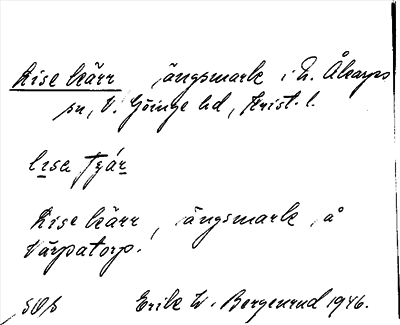 Lise kärr, ängsmark i N. Åkarps
sn, V. Göinge hd, Krist. l.
lisa tjär
Lise kärr, ängsmark å
Värpatorp.
Erik W. Bergenrud 1946.